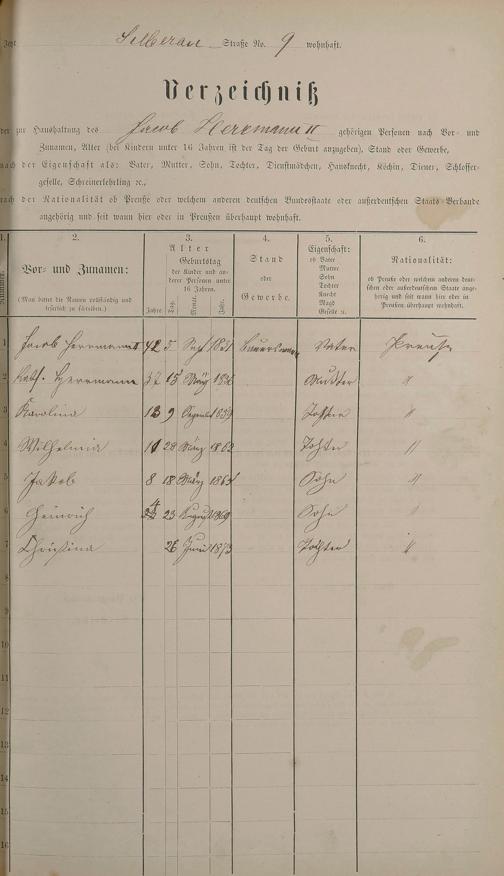 Jetzt Selberau Straße No. 9 wohnhaft.
Verzeichniß
der zur Haushaltung des Jacob Herrmann II gehörigen Personen nach Vor- und
Zunamen, Alter (bei Kindern unter 16 Jahren ist der Tag der Geburt anzugeben), Stand oder Gewerbe,
nach der Eigenschaft als: Vater, Mutter, Sohn, Tochter, Dienstmädchen, Hausknecht, Köchin, Diener, Schlosser-
geselle, Schreinerlehrling ꝛc.,
nach der Nationalität ob Preuße oder welchem anderen deutschen Bundesstaate oder außerdeutschen Staats-Verbande
angehörig und seit wann hier oder in Preußen überhaupt wohnhaft.
1. 2. 3. 4. 5. 6.
Nummer.
Vor- und Zunamen:
(Man bittet die Namen vollständig und
leserlich zu schreiben.)
Alter
Geburtstag
der Kinder und an-
derer Personen unter
16 Jahren.
Jahre. Tag. Monat. Jahr.
Stand
oder
Gewerbe.
Eigenschaft:
ob Vater
Mutter
Sohn
Tochter
Knecht
Magd
Geselle ꝛc.
Nationalität:
ob Preuße oder welchem anderen deut-
schen oder außerdeutschen Staate ange-
hörig und seit wann hier oder in
Preußen überhaupt wohnhaft.
1 Jacob Herrmann II 42 5 1831 Vater Preuße
2 Kath. Herrmann 37 15 März 1836 Mutter "
3 Karolina 13 9 1859 Tochter "
4 Wilhelmia 10 28 März 1863 Tochter "
5 Jakob 8 18 März 1865 Sohn "
6 Heinrich 4 23 August 1869 Sohn "
7 Christina 26 Juni 1873 Tochter "
8
9
10
11
12
13
14
15
16